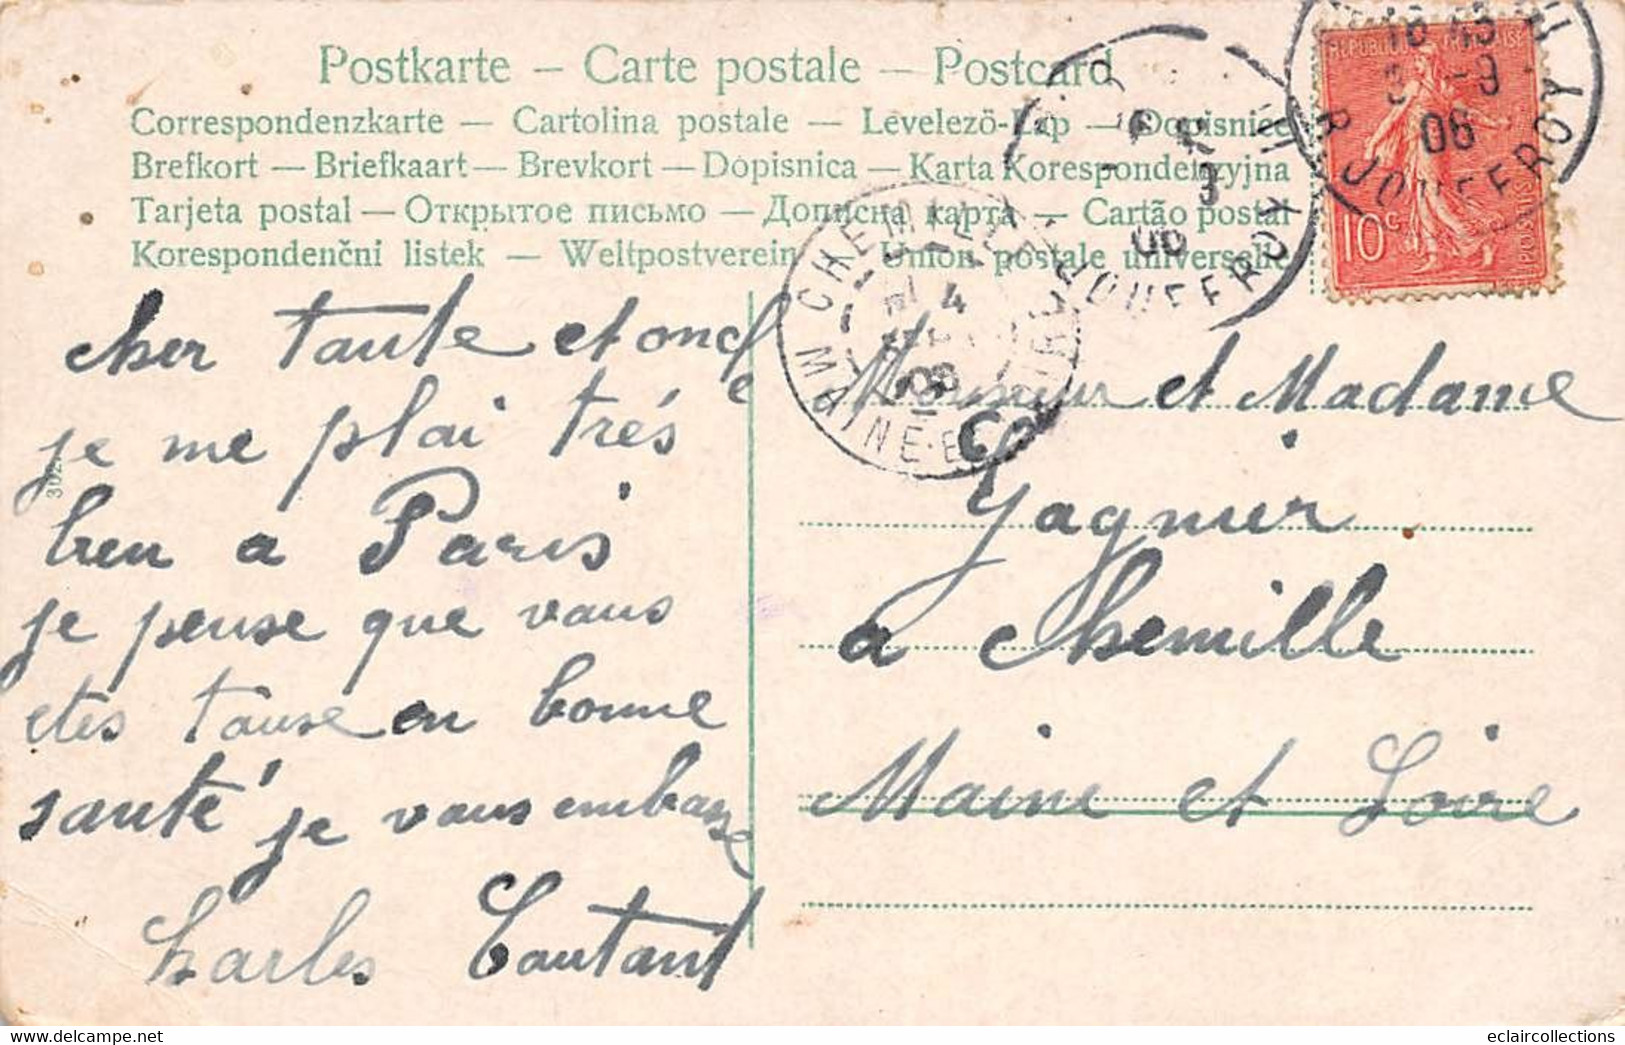 Postkarte – Carte postale – Postcard
Correspondenzkarte — Cartolina postale — Levelező-Lap — Dopisnice
Brefkort — Briefkaart — Brevkort — Dopisnica — Karta Korespondenzyjna
Tarjeta postal — Открытое письмо — Дописна карта — Cartão postal
Korespondenční listek — Weltpostverein — Union postale universelle
REPUBLIQUE FRANÇAISE
10c
POSTES
16 45
3 -9
06
R. JOUFFROY
3
06
JOUFFROY
CHEMILLÉ
4
06
MAINE-ET-LOIRE
cher tante et oncle
je me plai trés
bien a Paris
je pense que vous
etes tause en bonne
santé je vous embasse
Charles Tautant
Monsieur et Madame
Gagnier
a Chemille
Maine et Loire
www.delcampe.net
eclaircollections